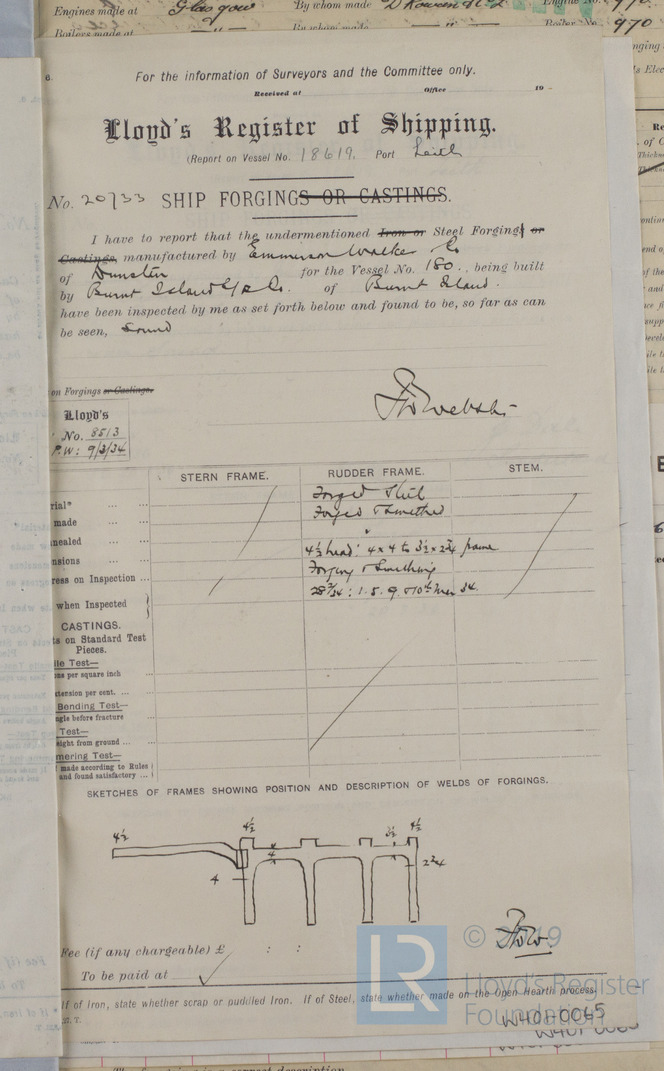 Engines made at Glasgow By whom made D Rowan & Co Engine No. 970
Boilers made at " By whom made " Boiler No. 970
For the information of Surveyors and the Committee only.
Received at Office 19
Lloyd's Register of Shipping.
(Report on Vessel No. 18619. Port Leith
No. 20733 SHIP FORGINGS OR CASTINGS.
I have to report that the undermentioned Iron or Steel Forgings or
Castings, manufactured by Emmerson Walker Co
of Dunston for the Vessel No. 180., being built
by Burnt Island S/B Co. of Burnt Island.
have been inspected by me as set forth below and found to be, so far as can
be seen, Sound
on Forgings or Castings.
Lloyd's
No. 8513
P.W: 9/3/34
STERN FRAME. RUDDER FRAME. STEM.
rial* ... ... Forged Steel
made ... ... Forged & Smithed
nealed ... ... "
nsions ... 4½ head: 4 x 4 to 3½ x 2¾ frame
ress on Inspection ... Forging & Smithing
when Inspected 28/2/34: 1. 5. 9 & 10th Mar 34.
CASTINGS.
ts on Standard Test
Pieces.
ile Test—
ons per square inch ...
xtension per cent. ... ...
Bending Test—
ngle before fracture ...
Test—
eight from ground ... ...
mering Test—
made according to Rules
and found satisfactory ...
SKETCHES OF FRAMES SHOWING POSITION AND DESCRIPTION OF WELDS OF FORGINGS.
4½ 4½ 3½ 4½
4
4 2¾
Fee (if any chargeable) £ : :
To be paid at
© 2019
Lloyd's Register
Foundation
LR
If of Iron, state whether scrap or puddled Iron. If of Steel, state whether made on the Open Hearth process.
W401-0065